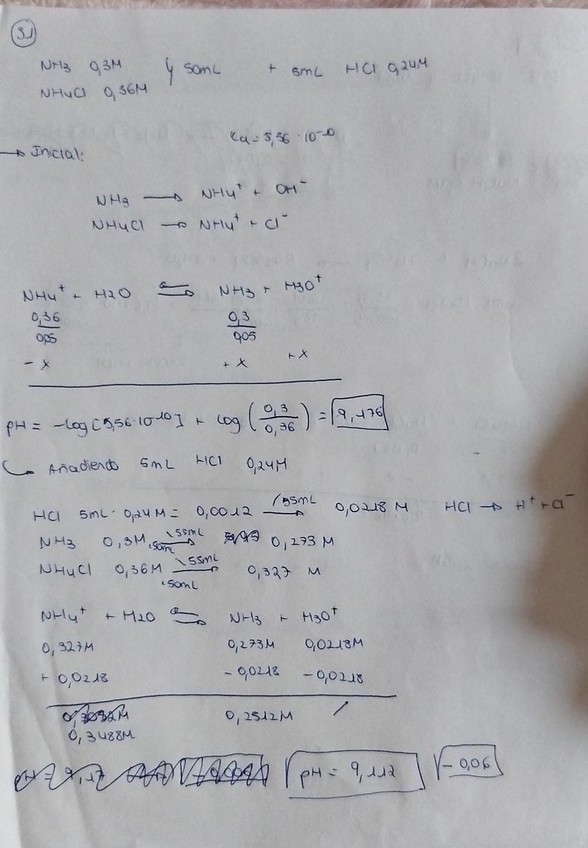 3.1
NH3 0,3M y 50mL + 5mL HCl 0,24M
NH4Cl 0,36M
Ka = 5,56 · 10⁻¹⁰
→ Inicial:
NH3 → NH4⁺ + OH⁻
NH4Cl → NH4⁺ + Cl⁻
NH4⁺ + H2O ⇌ NH3 + H3O⁺
0,36/0,05 0,3/0,05
-x +x +x
pH = -log[5,56·10⁻¹⁰] + log(0,3/0,36) = 9,176
Añadiendo 5mL HCl 0,24M
HCl 5mL · 0,24M = 0,0012 /55mL → 0,0218 M HCl → H⁺ + Cl⁻
NH3 0,3M ·50mL \55mL → 0,273 M
NH4Cl 0,36M ·50mL \55mL → 0,327 M
NH4⁺ + H2O ⇌ NH3 + H3O⁺
0,327M 0,273M 0,0218M
+0,0218 -0,0218 -0,0218
0,2512M /
0,3488M
pH = 9,112 -0,06